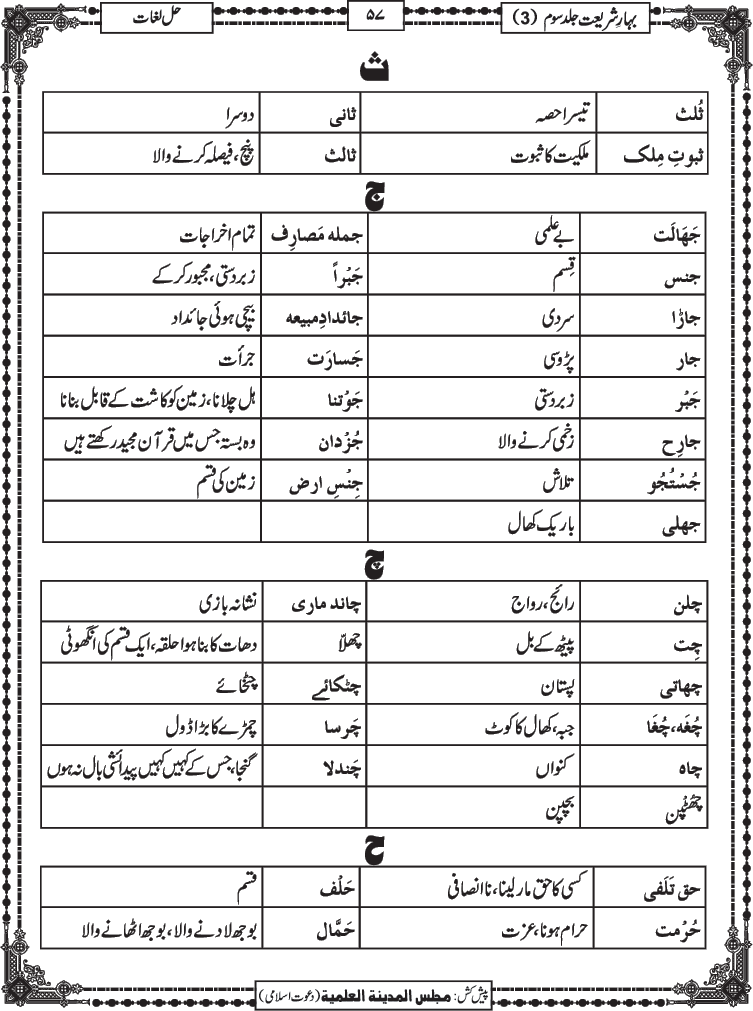 بہارِ شریعت جلد سوم (3) ۵۷ حل لغات
ث
ثُلث تیسرا حصہ ثانی دوسرا
ثبوتِ مِلک ملکیت کا ثبوت ثالث پنچ، فیصلہ کرنے والا
ج
جَهَالَت بے علمی جمله مَصارِف تمام اخراجات
جنس قِسم جَبْراً زبردستی، مجبور کر کے
جاڑا سردی جائدادِ مبیعه بیچی ہوئی جائداد
جار پڑوسی جَسارَت جرأت
جَبْر زبردستی جَوْتنا ہل چلانا، زمین کو کاشت کے قابل بنانا
جارِح زخمی کرنے والا جُزْدان وہ بستہ جس میں قرآن مجید رکھتے ہیں
جُسْتُجُو تلاش جِنْسِ ارض زمین کی قسم
جھلی باریک کھال
چ
چلن رائج، رواج چاند ماری نشانہ بازی
چِت پیٹھ کے بل چھلّا دھات کا بنا ہوا حلقہ، ایک قسم کی انگھوٹی
چھاتی پستان چٹکائے چٹخائے
چُغَه، چُغَا جبہ، کھال کا کوٹ چَرسا چمڑے کا بڑا ڈول
چاہ کنواں چَندلا گنجا، جس کے کہیں کہیں پیدائشی بال نہ ہوں
چُھٹپن بچپن
ح
حق تَلَفی کسی کا حق مار لینا، نا انصافی حَلْف قسم
حُرْمت حرام ہونا، عزت حَمَّال بوجھ لادنے والا، بوجھ اٹھانے والا
پیش کش: مجلس المدینة العلمیة (دعوت اسلامی)